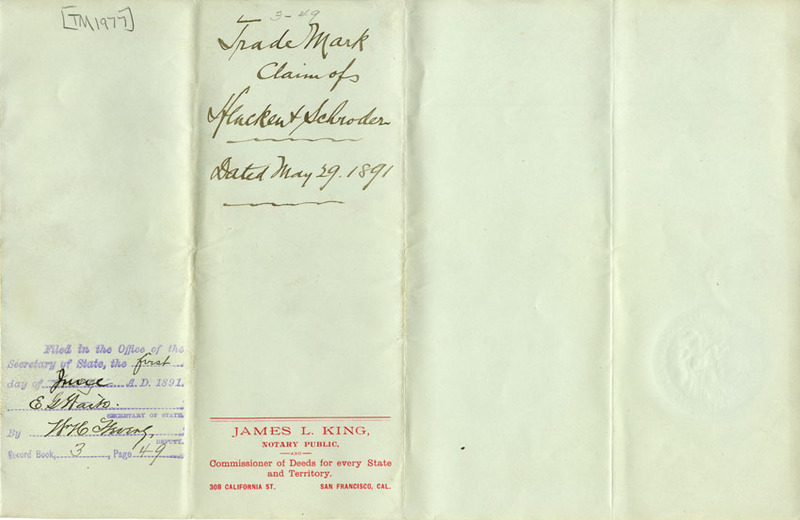 [TM1977]
3-49
Trade Mark
Claim of
Hucken & Schroder
Dated May 29. 1891
Filed in the Office of the
Secretary of State, the first
day of June A.D. 1891.
E. G. Waite
SECRETARY OF STATE.
By W H
DEPUTY.
Record Book, 3, Page 49
JAMES L. KING,
NOTARY PUBLIC,
—AND—
Commissioner of Deeds for every State
and Territory.
308 CALIFORNIA ST. SAN FRANCISCO, CAL.